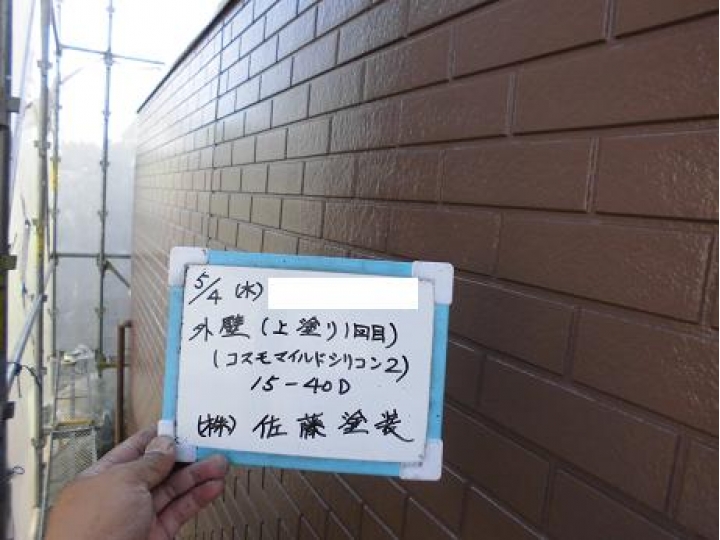 5/4 (水)
外壁 (上塗り1回目)
(コスモマイルドシリコン2)
15-40D
(株) 佐藤塗装